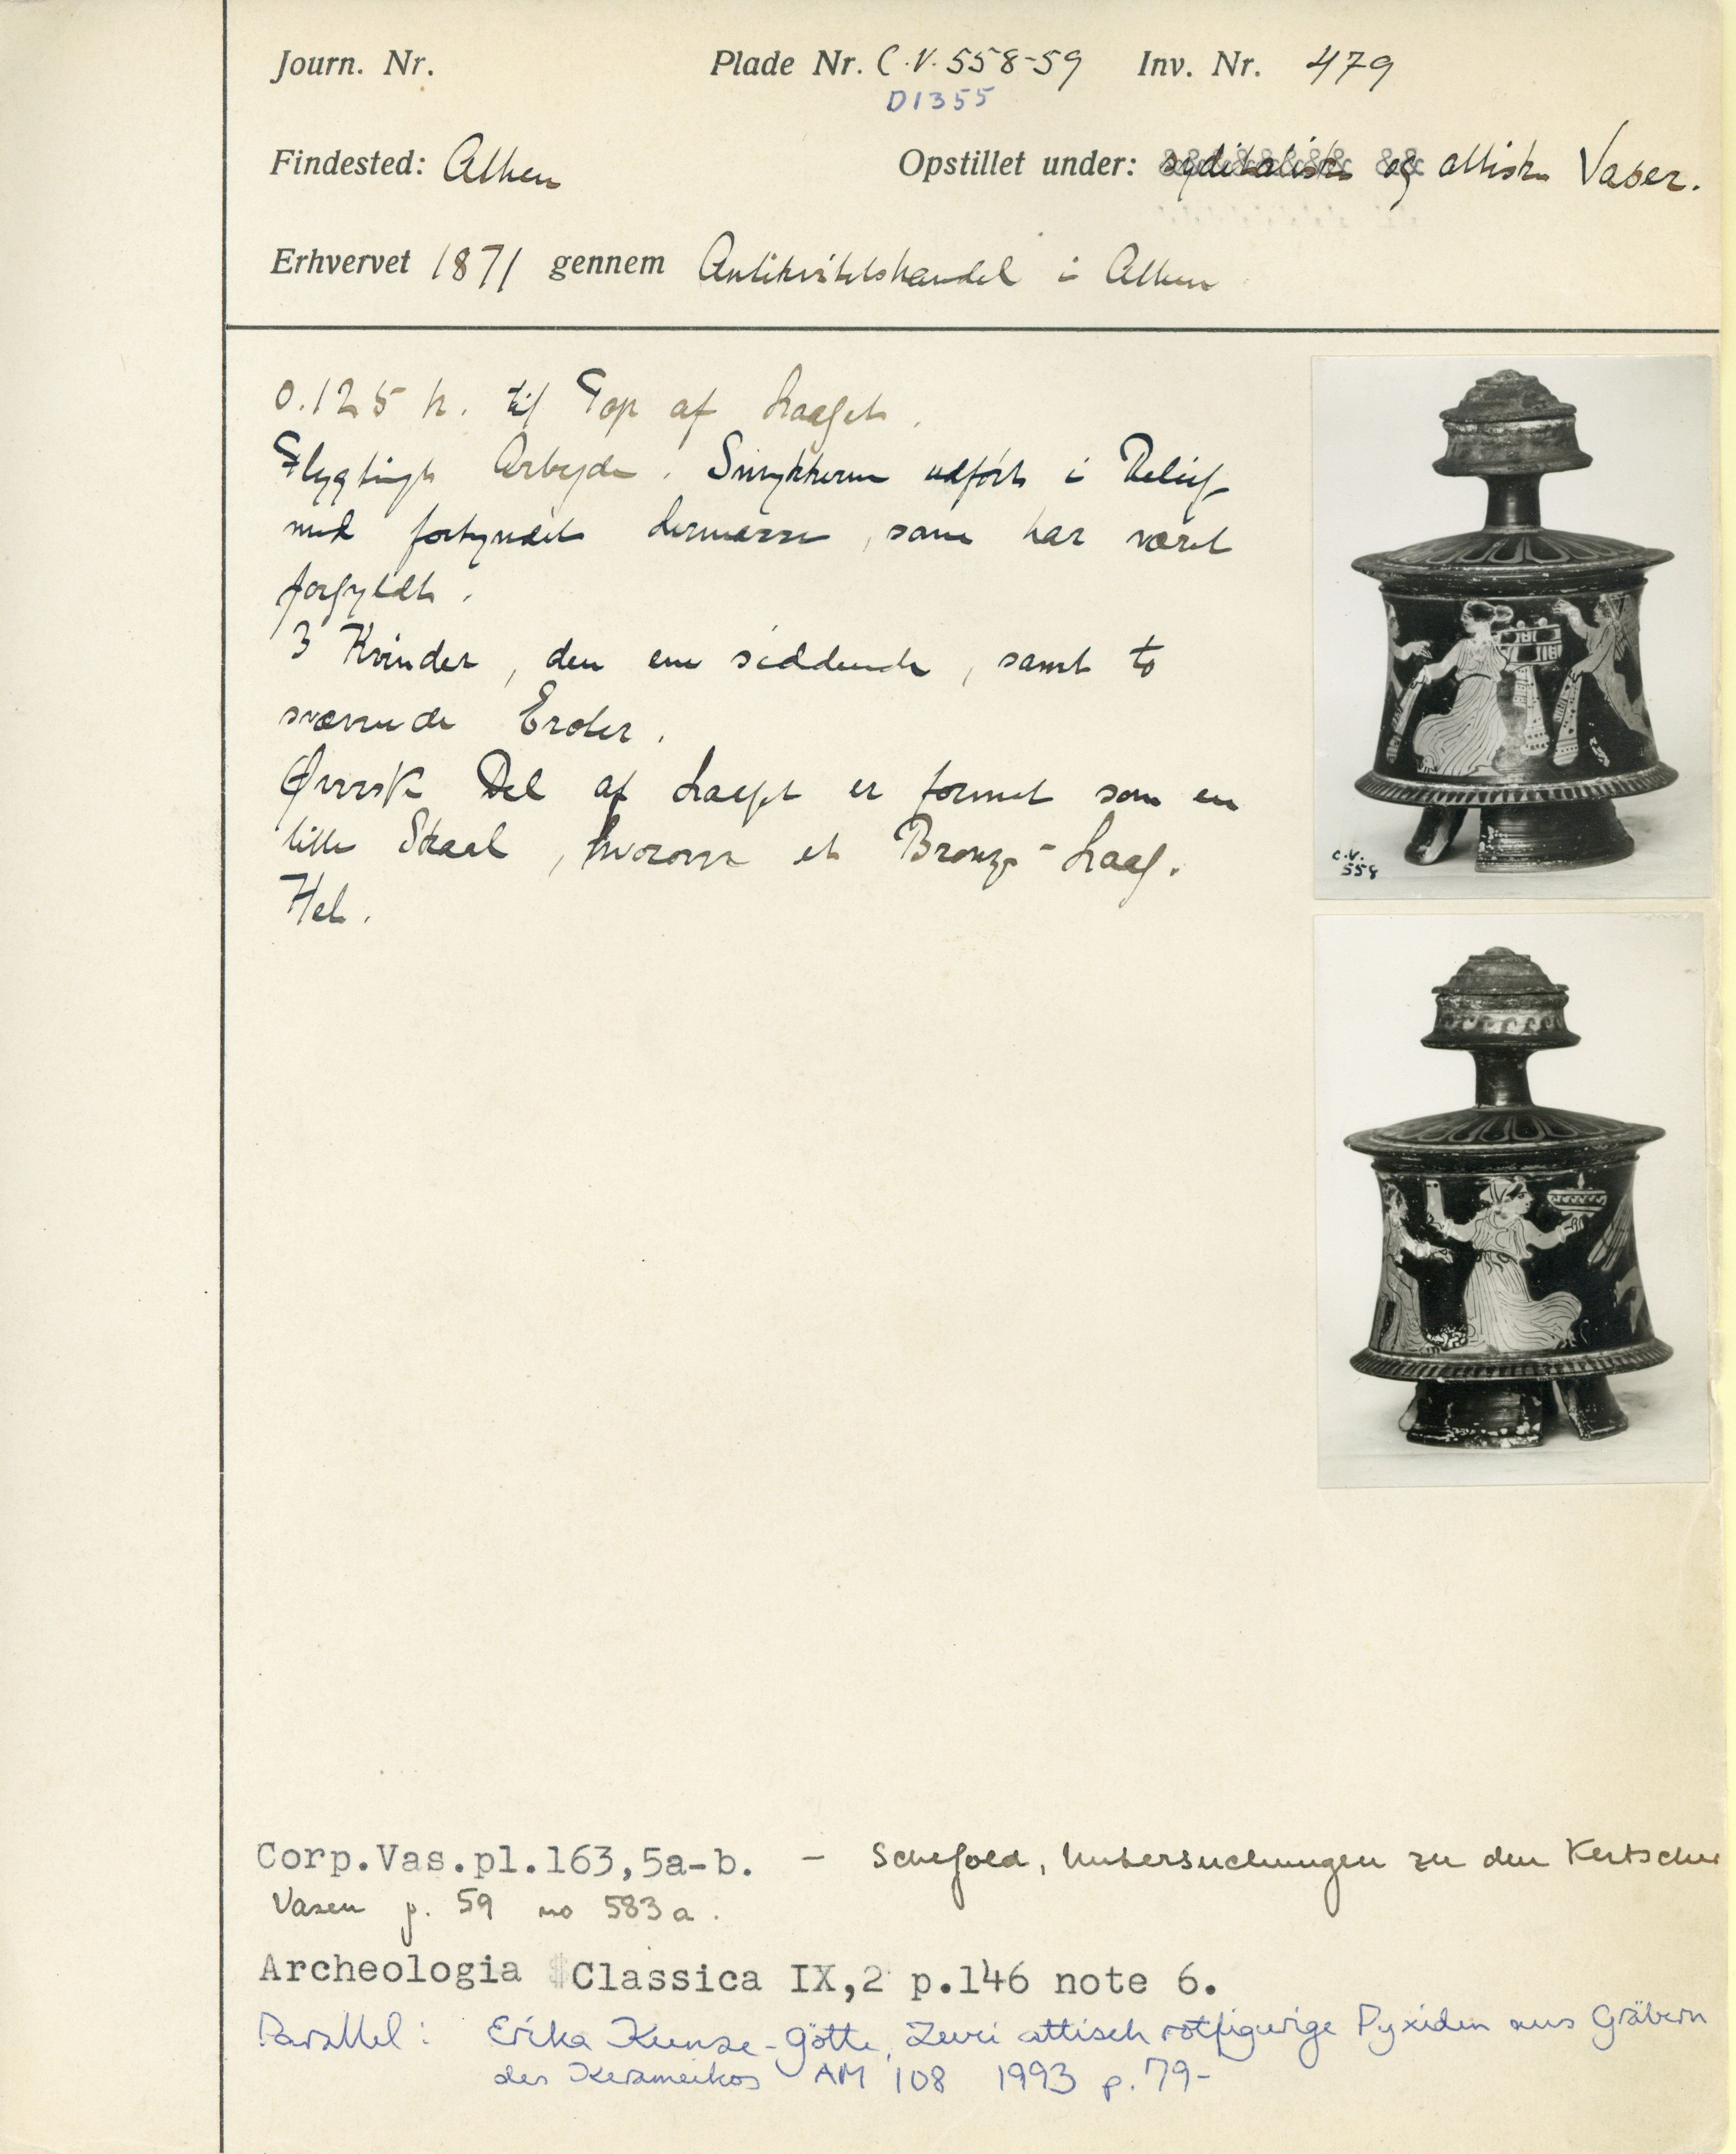 Journ. Nr. Plade Nr. C.V. 558-59 Inv. Nr. 479
D1355
Findested: Athen Opstillet under: syditaliske og attiske Vaser.
Erhvervet 1871 gennem Antikvitetshandel i Athen
0.125 h. til Top af Laaget.
Flygtigt Arbejde. Smykkerne udført i Relief
med fortyndet Lermasse, som har været
forgyldt.
3 Kvinder, den ene siddende, samt to
svævende Eroter.
Øverste Del af Laaget er formet som en
lille Skaal, hvorover et Bronze-Laag.
Hel.
C.V.
558
Corp.Vas.pl.163,5a-b. - Schefold, Untersuchungen zu den Kertscher
Vasen p. 59 no 583a.
Archeologia Classica IX,2 p.146 note 6.
Parallel: Erika Kunze-Götte, Zwei attisch rotfigurige Pyxiden aus Gräbern
des Kerameikos AM 108 1993 p. 79-